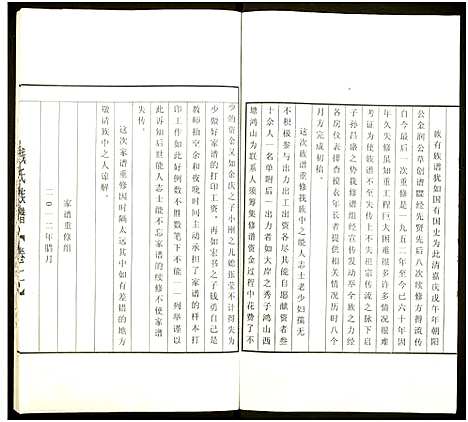 族有族谱犹如国有国史为此清嘉庆戊午年朝阳
公金润公草创谱牒经先贤先后八次续修方得流传
自今最后一次重修是一九五一年至今已六十年因
年久失修又如重工程巨大困难很多许多情况很难
考证为使族谱不至失传上不失担宗传流之脉下启
子孙昌盛之势我修谱组经宣传发动举全族之力经
各房仪表排查摸表年长者共提供相关情况历时八个
月方完成初稿。
这次族谱重修我族中之能人志士老少妇孺无
不积极参与出力出工出资各尽其能自愿献资者叁
十余人一名单附后者大岸之秀子鸿山西
塘鸿山为联系人须筹集修谱资金过程中花费了不
少的资金又如金庆之子小刚之儿媳张莹不计得失为
少做好家谱的打印工资。再如宏书之子钱勇自己是
教师抽空余和夜晚时间主动承担了家谱的样本打
印工作如此好例数不胜数笔下不能一一列举谨以
此诉知后世能人志士能不忘家谱的续修不使家谱
失传。
这次家谱重修因时隔太远其中如有差错的地方
敬请族中之人谅解。
家谱重修组
二〇一二年腊月